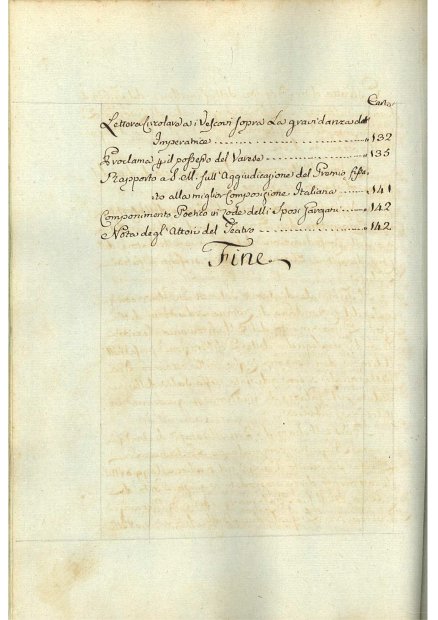 Carta
Lettera Circolare a i Vescovi sopra La gravidanza dell
Imperatrice „ 132
Proclama p il possesso del Varese „ 135
Rapporto a d. oll. sull' Aggiudicazione del Premio fissa
to alla miglior Composizione Italiana „ 141
Componimento Poetico in lode delli Sposi Gavgani „ 142
Nota degl' Attori del Teatro „ 142
Fine